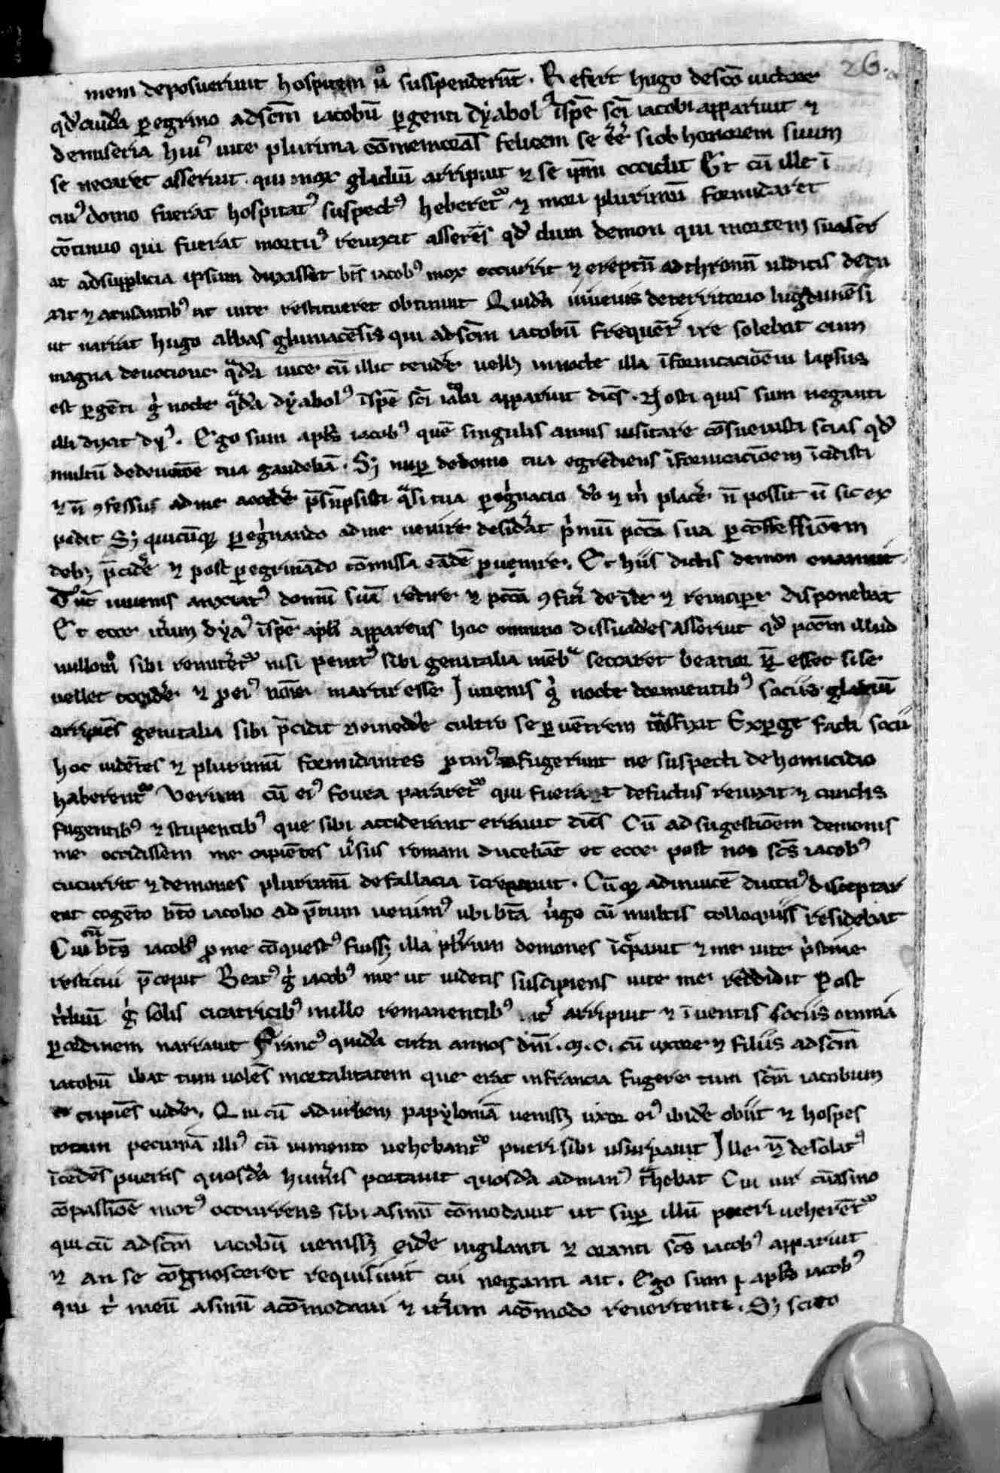 26.
mem deposuerunt hospitem ỻo suspenderūt. Refert hugo de scō uictore
qd̄ cuidā peregrino ad scm̄ iacobū pergenti dyabolꝰ ī spē sc̄i iacobi apparuit ⁊
de miseria huiꝰ uite plurima cōmemorās felicem se eē si ob honorem suum
se necaret asseruit. qui mox gladiū arripuit ⁊ se ipm̄ occidit Et cū ille ī
cuiꝰ domo fuerat hospitatꝰ suspectꝰ haberetᷣ ⁊ mori plurimū formidaret
cōtinuo qui fuerat mortuꝰ reuixit asserēs qd̄ dum demon qui mortem suaser
at ad supplicia ipsum duxisset bt̄s iacobꝰ mox occurrit ⁊ ereptū ad thronū
⁊ acusantibꝰ ut uite restitueret obtinuit Quidā iuuenis de territorio lugdunēsi
ut narrat hugo abbas cluniacēsis qui ad scm̄ iacobū frequēter ire solebat cum
magna deuocione qadā uice cū illic tendere uellꝫ in nocte illa ī fornicacionem lapsus
est pergēti g̊ nocte qadā dyabolꝰ ī spē sc̄i iacobi apparuit dicēs. Nosti quis sum neganti
illi dixit dyꝰ. Ego sum aplūs iacobꝰ quē singulis annis uisitare cōsueuisti scias qd̄
multū de deuocōe tua gaudebā. Sꝫ nuper de domo tua egrediens ī fornicacionem īcidisti
⁊ nō ꝯfessus ad me accedere p̄sūpsisti qasi tua peregrinacio deo ⁊ m̄ placere nō possit nō sic ex
pedit Sꝫ quicūqꝫ peregrinando ad me uenire desiderat primū pcc̄a sua per cōfessionem
debꝫ p̄cidere ⁊ post peregrinādo cōmissa eadē punire. Et hiis dictis demon euanuit
Tūc iuuenis anxiatꝰ domū suā redire ⁊ pcc̄a ꝯfiteri deinde ⁊ reincipere disponebat
Et ecce iterum dyaꝰ ī spē apl̄i apparens hoc omnino dissuadēs asseruit qd̄ pccm̄ illud
nullomō sibi remitteretᷣ nisi penitꝰ sibi genitalia mēbra seccaret beatior essset si se
uellet occidere ⁊ pro eiꝰ nomine martir esse Iuuenis g̊ nocte dormientibꝰ sociis gladium
arripiēs genitalia sibi p̄cidit cultro se per uentrem trāsfixit Experge facti socii
hoc uidentes ⁊ plurimū formidantes protinꝰ aufugerunt ne suspecti de homicidio
haberentᷣ Verum cū eiꝰ fouea pararetᷣ qui fuerat defuctus reuixit ⁊ cunctis
fugentibꝰ ⁊ stupentibꝰ que sibi acciderant enarrauit dicēs Cū ad sugestionem demonis
me occidissem me capientes uersus romam ducebāt et ecce post nos sc̄s iacobꝰ
cucurrit ⁊ demones plurimū de fallacia īcrepauit. Cūqꝫ adinuicē diucius disceptar
ent cogente bto iacobo ad pratum uenimꝰ ubi btā uirgo cū multis colloquiis residebat
Cui cū bt̄s iacobꝰ pro me cōquestꝰ fuissꝫ illa plurimum demones īcrepauit ⁊ me uite pristine
restitui p̄cepit Beatꝰ g̊ iacobꝰ me ut uidetis suscipiens uite me reddidit Post
triduū g̊ solis cicatricibꝰ nullo remanentibꝰ iter arripuit ⁊ īuentis sociis omnia
per ordinem narrauit Francꝰ quidā circa annos dn̄i. M. C. cū uxore ⁊ filiis ad scm̄
iacobū ibat tum uolēs mortalitatem que erat in francia fugere tum scm̄ iacobum
cupiēs uidere. Qui cū ad urbem papyloniā uenissꝫ uxor eiꝰ ibidem obiit ⁊ hospes
totam pecuniā illiꝰ cū iumento uehebantᷣ pueri sibi usurpauit Ille desolatꝰ
īcedēs pueris quosdā humeris portauit quosdā ad manꝰ trahebat Cui uir cū asino
cōpassiōe motꝰ occurrens sibi asinū cōmodauit ut super illū pueri ueherētᷣ
qui cū ad scm̄ iacobū uenissꝫ eidem uigilanti ⁊ oranti sc̄s iacobꝰ apparuit
⁊ an se cōgnosceret requisiuit cui neganti ait. Ego sum aplūs iacobꝰ
qui t̄ meū asinū acōmodaui ⁊ iterum acōmodo reuertenti. Sꝫ scito